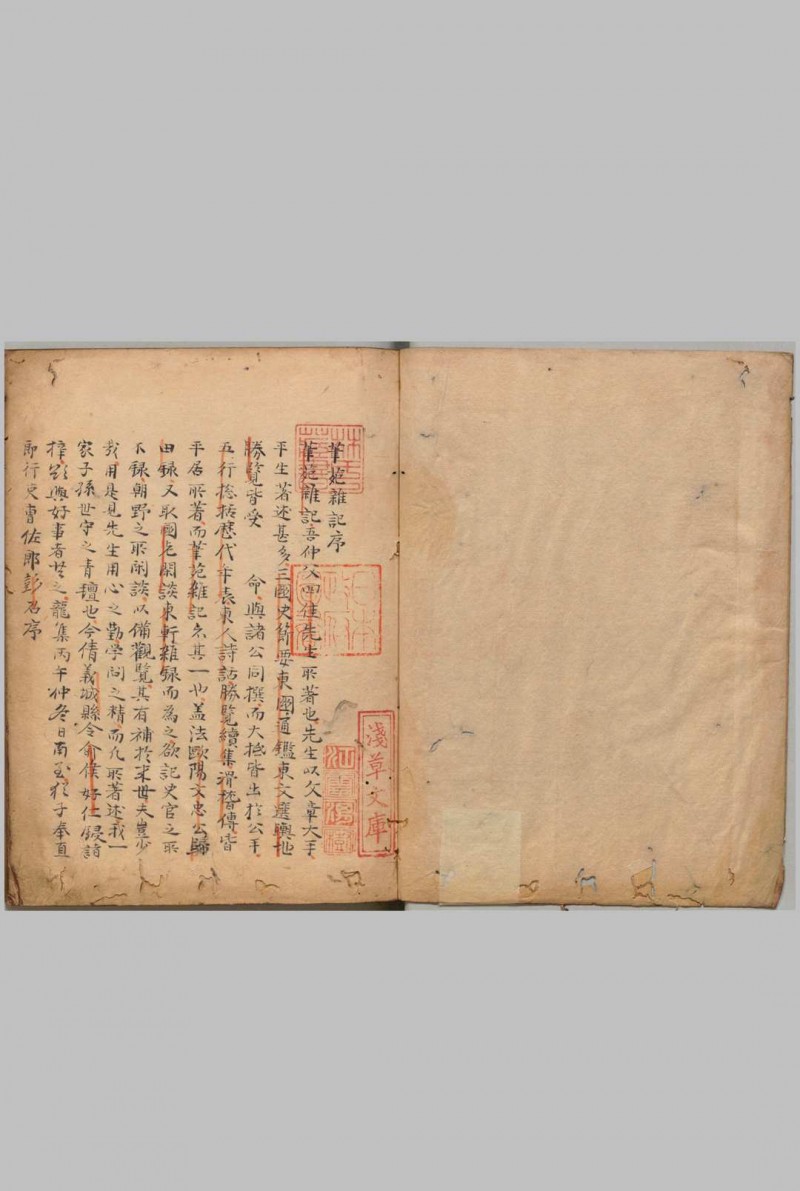 筆苑雜記序
筆苑雜記吾仲父四佳先生所著也先生以文章大手
平生著述甚多三國史節要東國通鑑東文選輿地
勝覽皆受　命與諸公同撰而大抵皆出於公手
五行摠括歷代年表東人詩話勝覽續集滑稽傳皆
平居所著而筆苑雜記亦其一也盖法歐陽文忠公歸
田録又取國老閑談東軒雜録而為之欲記史官之所
不録朝野之所閑談以備觀覽其有補於來世夫豈少
哉用是見先生用心之勤學問之精而凡所著述我一
家子孫世守之青氊也今倩義城縣令俞侯好仁鋟諸
梓欲與好事者共之龍集丙午仲冬日南至猶子奉直
郎行吏曹佐郎彭召序
淺草文庫
日本
林氏